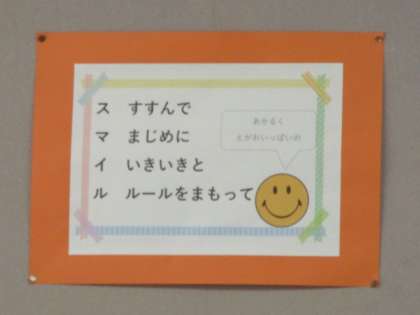 ス すすんで
マ まじめに
イ いきいきと
ル ルールをまもって
あかるく
えがおいっぱいの